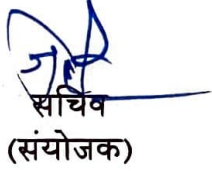 सचिव
(संयोजक)